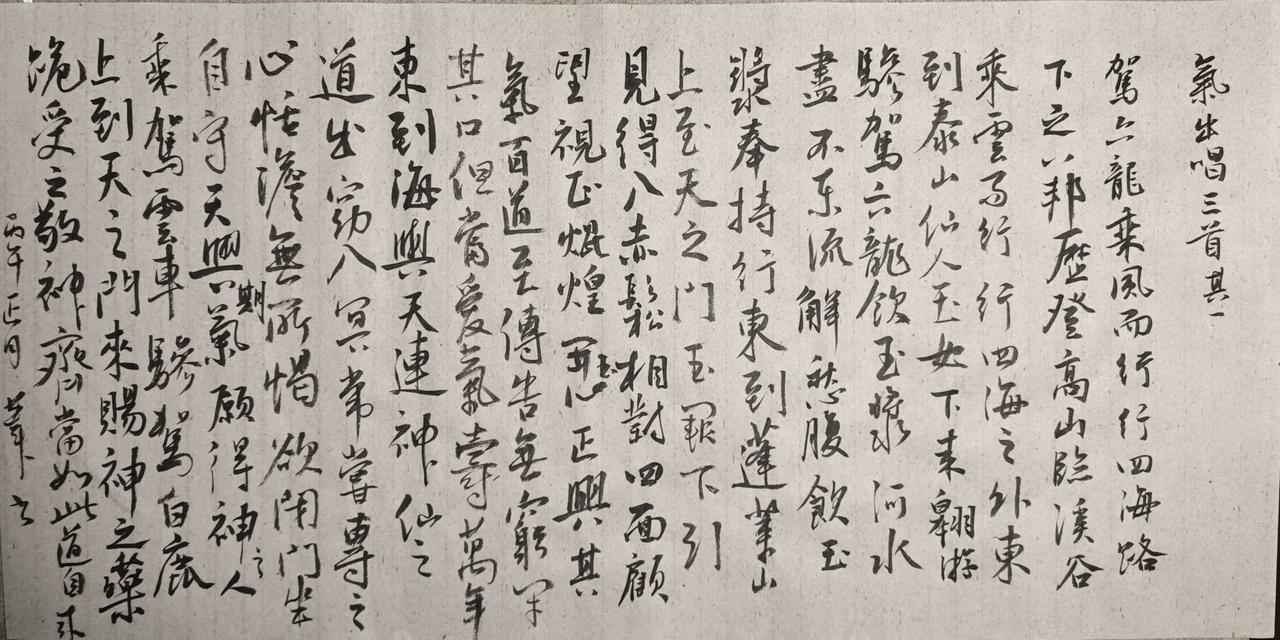 氣出唱三首其一
駕六龍乘風而行行四海路
下之八邦歷登高山臨溪谷
乘雲而行行四海之外東
到泰山仙人玉女下來翺游
驂駕六龍飲玉漿河水
盡不東流解愁腹飲玉
漿奉持行東到蓬萊山
上至天之門玉闕下引
見得入赤鬆相對四面顧
望視正焜煌開玉心正興其
氣百道至傳告無窮閉
其口但當愛氣壽萬年
東到海與天連神仙之
道出窈入冥常當專之
心恬澹無所惕欲閉門坐
自守天與期氣願得神之人
乘駕雲車驂駕白鹿
上到天之門來賜神之藥
跪受之敬神齊當如此道自來
丙午正月